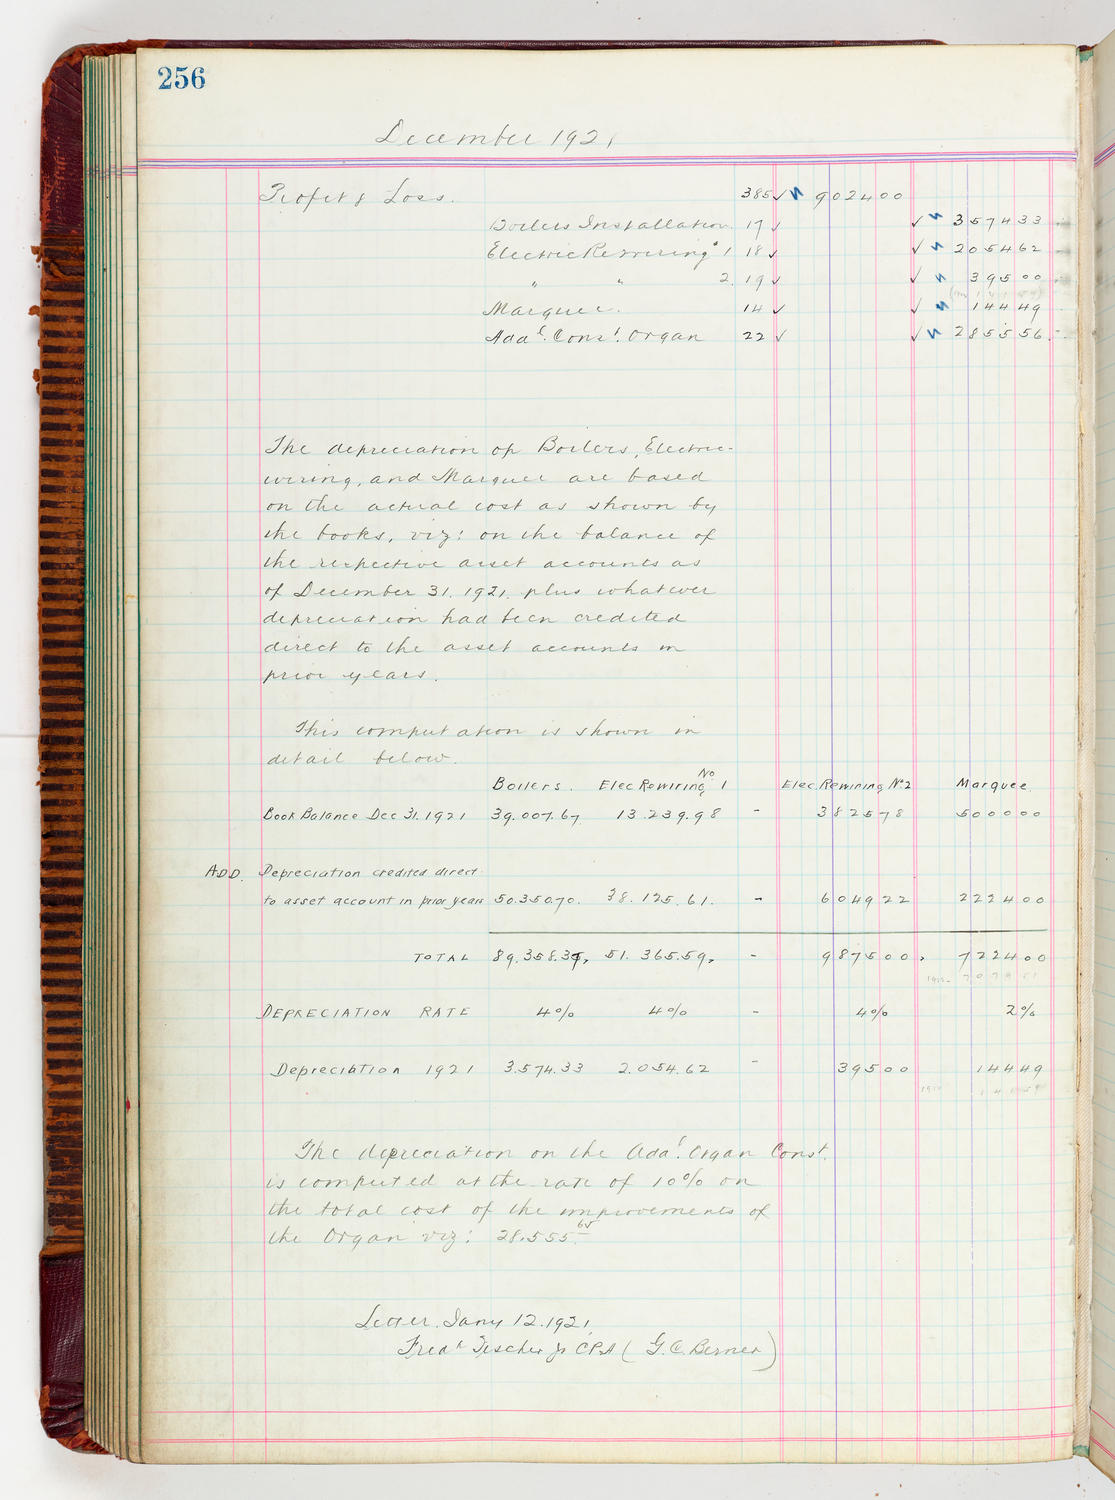 256
December 1921
Profit & Loss. 385 ✓ 902400
Boilers Installation 17 ✓ ✓ 357433
Electric Rewiring #1 18 ✓ ✓ 205462
" " 2. 19 ✓ ✓ 39500
Marquee. 14 ✓ ✓ 14449
Add'l. Cons't. Organ 22 ✓ ✓ 285556
The depreciation of Boilers, Electric-
wiring, and Marquee are based
on the actual cost as shown by
the books, viz: on the balance of
the respective asset accounts as
of December 31. 1921. plus whatever
depreciation had been credited
direct to the asset accounts in
prior years.
This computation is shown in
detail below.
Boilers. Elec Rewiring No 1 Elec. Rewiring No 2 Marquee.
Book Balance Dec 31. 1921 39.007.67 13.239.98 - 382578 500000
ADD. Depreciation credited direct
to asset account in prior years 50.350.70. 38.125.61. - 604922 222400
TOTAL 89.358.37, 51.365.59, - 987500, 722400
DEPRECIATION RATE 4% 4% - 4% 2%
Depreciation 1921 3.574.33 2.054.62 - 39500 14449
The depreciation on the Add'l. Organ Cons't.
is computed at the rate of 10% on
the total cost of the improvements of
the Organ viz: 28.555.65
Letter. Jany 12. 1921
Fred k Tischer Jr CPA (G. C. Berner)